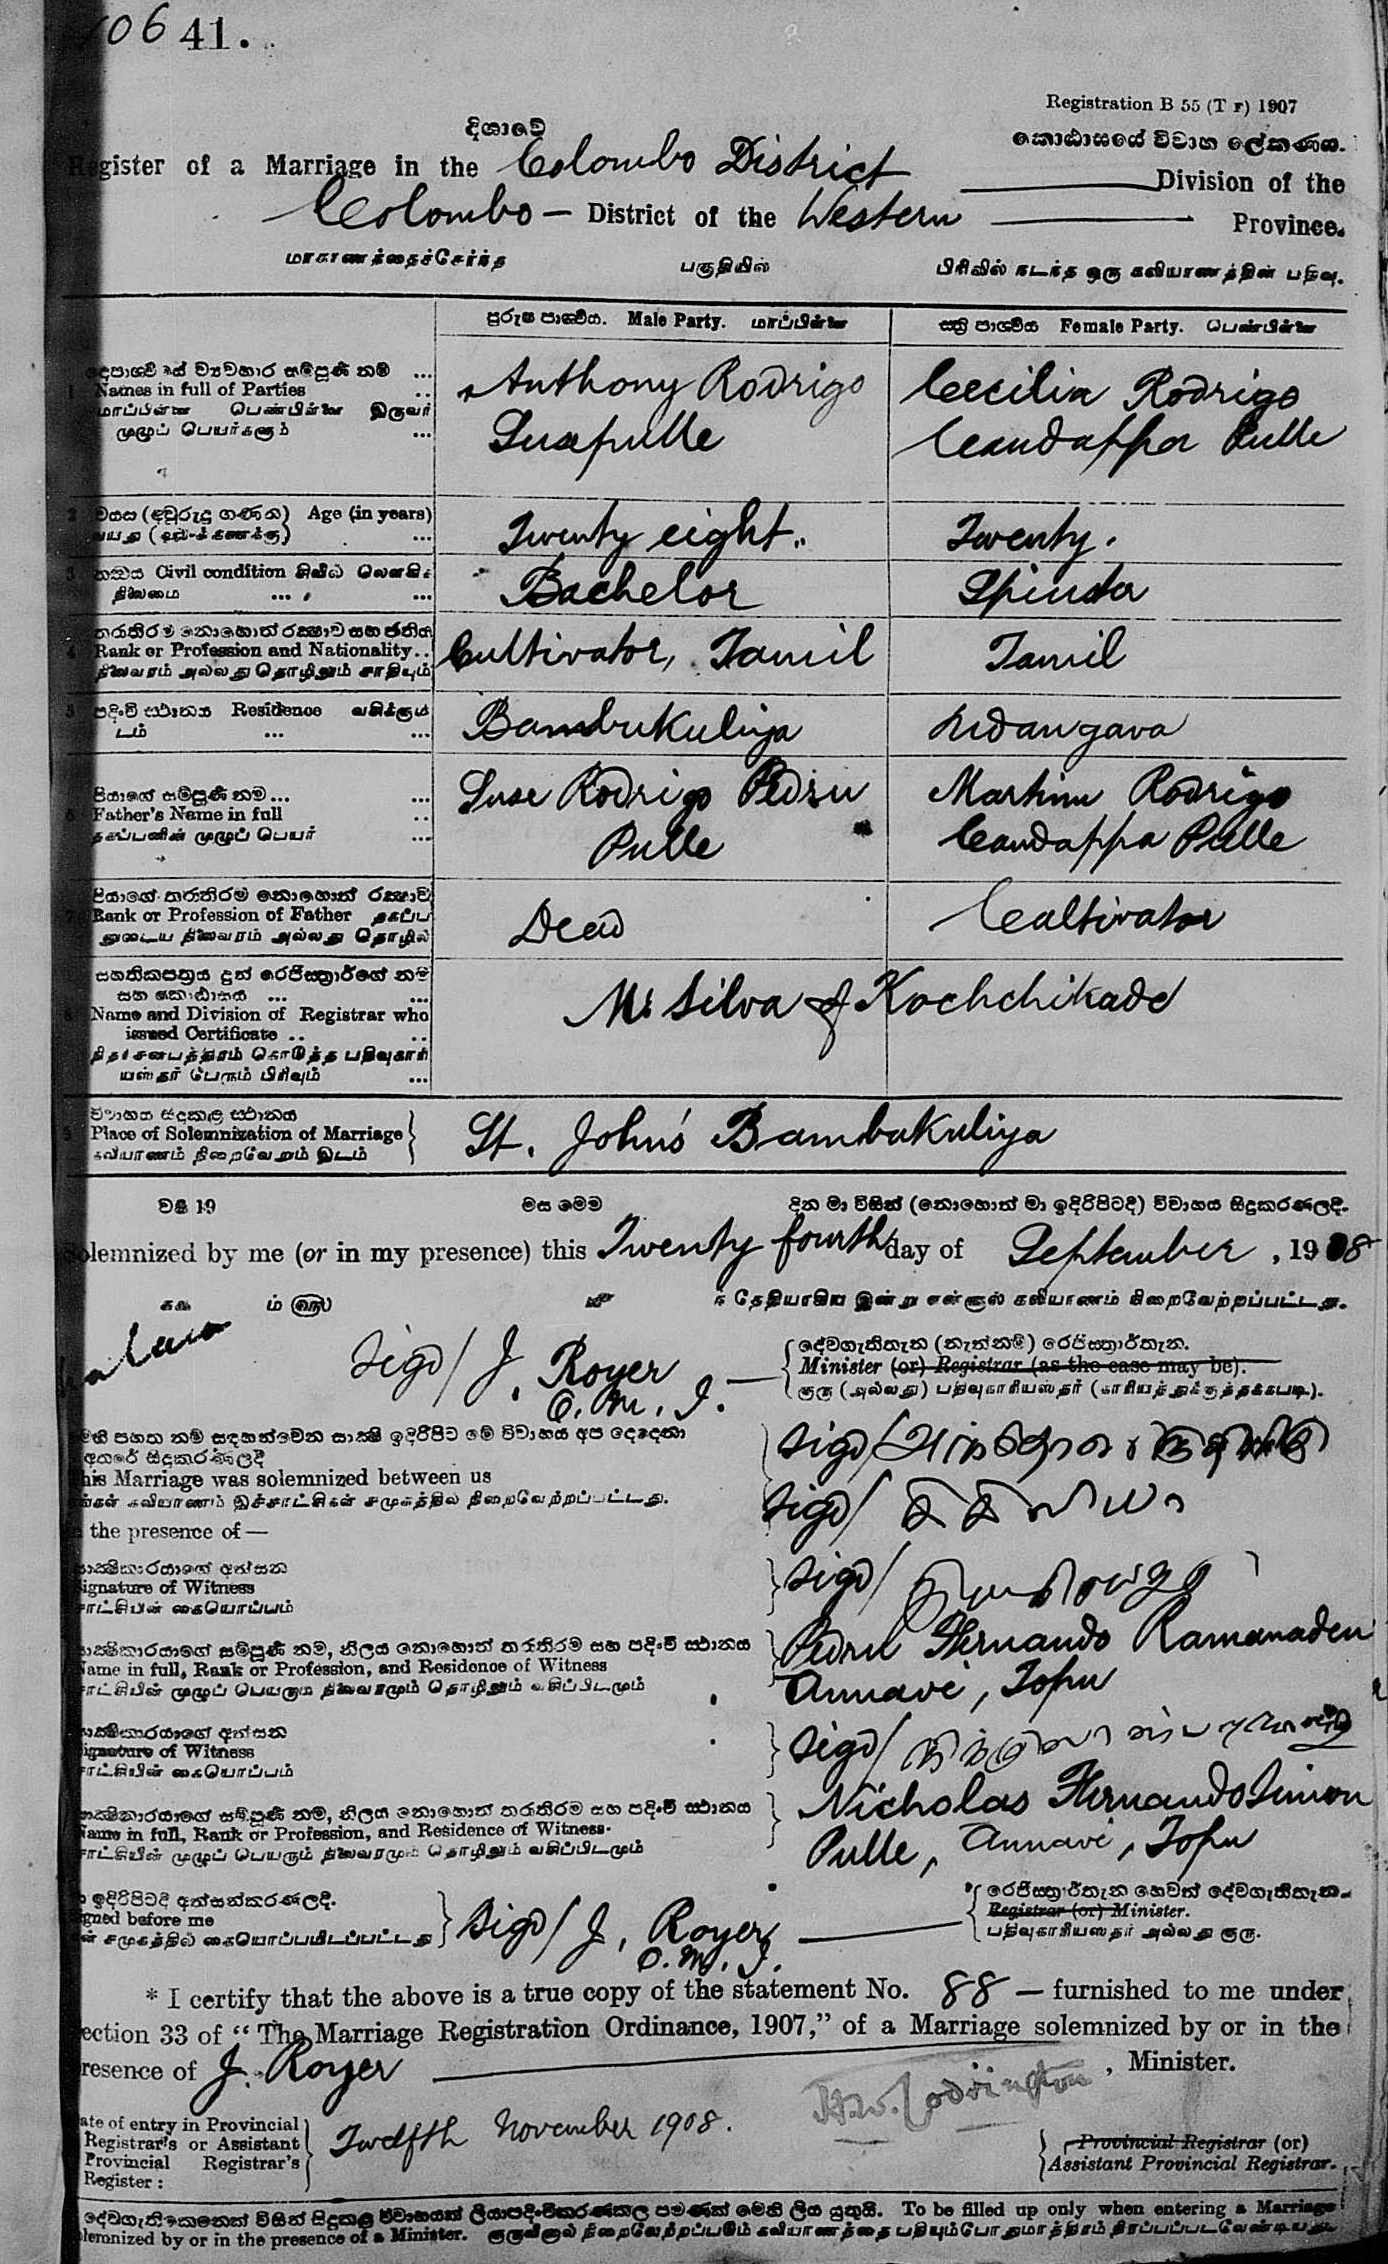 106 41.
Registration B 55 (T r) 1907
දිශාවේ
කොඨාසයේ විවාහ ලේකණය.
Register of a Marriage in the Colombo District Division of the
Colombo — District of the Western Province.
மாகாணத்தைச்சேர்ந்த பகுதியில் பிரிவில் நடந்த ஒரு கலியாணத்தின் பதிவு.
පුරුෂ පාර්ශ්වය. Male Party. மாப்பிள்ளை
ස්ත්‍රී පාර්ශ්වය Female Party. பெண்பிள்ளை
1 Names in full of Parties
மாப்பிள்ளை பெண்பிள்ளை இருவர்
முழுப் பெயர்களும்
Anthony Rodrigo
Susepulle
Cecilia Rodrigo
Candappa Pulle
2 වයස (අවුරුදු ගණන) Age (in years)
Twenty eight.
Twenty.
3 Civil condition
நிலைமை
Bachelor
Spinster
තරාතිරම නොහොත් රක්ෂාව සහ ජාතිය
4 Rank or Profession and Nationality..
நிலைவரம் அல்லது தொழிலும் சாதியும்
Cultivator, Tamil
Tamil
5 පදිංචි ස්ථානය Residence
Bambukuliya
Udangava
පියාගේ සම්පූර්ණ නම...
6 Father's Name in full
தகப்பனின் முழுப் பெயர்
Suse Rodrigo Pedru
Pulle
Martinu Rodrigo
Candappa Pulle
පියාගේ තරාතිරම නොහොත් රක්ෂාව
7 Rank or Profession of Father தகப்ப
னுடைய நிலைவரம் அல்லது தொழில்
Dead
Cultivator
සහතිකපත්‍රය දුන් රෙජිස්ත්‍රාර්ගේ නම
සහ කොඨාසය ...
8 Name and Division of Registrar who
issued Certificate ..
யஸ்தர் பேரும் பிரிவும்
M. Silva of Kochchikade
විවාහය සිදුකළ ස්ථානය
9 Place of Solemnization of Marriage
கலியாணம் நிறைவேறும் இடம்
St. John's Bambukuliya
වර්ෂ 19 මස මෙම දින මා විසින් (නොහොත් මා ඉදිරිපිටදී) විවාහය සිදුකරණලදී.
Solemnized by me (or in my presence) this Twenty fourth day of September, 1908
ந் தேதியாகிய இன்று என்னால் கலியாணம் நிறைவேற்றப்பட்டது.
Sigd/ J. Royer
O. M. I.
දේවගැතිතැන (නැත්නම්) රෙජිස්ත්‍රාර්තැන.
Minister (or) Registrar (as the case may be).
குரு (அல்லது) பதிவுகாரியஸ்தர் (காரியத்துக்குத்தக்கபடி).
මෙහි පහත නම් සඳහන්වෙන සාක්ෂි ඉදිරිපිට මේ විවාහය අප දෙදෙනා
අතරේ සිදුකරණලදී
This Marriage was solemnized between us
எங்கள் கலியாணம் இச்சாட்சிகள் சமுகத்தில் நிறைவேற்றப்பட்டது.
in the presence of —
Sigd/
Sigd/ சிசிலியா
සාක්ෂිකාරයාගේ අත්සන
Signature of Witness
சாட்சியின் கையொப்பம்
Sigd/
සාක්ෂිකාරයාගේ සම්පූර්ණ නම, නිලය නොහොත් තරාතිරම සහ පදිංචි ස්ථානය
Name in full, Rank or Profession, and Residence of Witness
சாட்சியின் முழுப் பெயரும் நிலைவரமும் தொழிலும் வசிப்பிடமும்
Pedru Fernando Ramanaden
Annavi, Topu
සාක්ෂිකාරයාගේ අත්සන
Signature of Witness
சாட்சியின் கையொப்பம்
Sigd/
සාක්ෂිකාරයාගේ සම්පූර්ණ නම, නිලය නොහොත් තරාතිරම සහ පදිංචි ස්ථානය
Name in full, Rank or Profession, and Residence of Witness.
சாட்சியின் முழுப் பெயரும் நிலைவரமும் தொழிலும் வசிப்பிடமும்
Nicholas Fernando Simon
Pulle, Annavi, Topu
මා ඉදිරිපිටදී අත්සන්කරණලදී.
Signed before me
என் சமுகத்தில் கையொப்பமிடப்பட்டது
Sigd/ J. Royer
O. M. I.
රෙජිස්ත්‍රාර්තැන හෙවත් දේවගැතිතැන.
Registrar (or) Minister.
பதிவுகாரியஸ்தர் அல்லது குரு.
* I certify that the above is a true copy of the statement No. 88 — furnished to me under
Section 33 of "The Marriage Registration Ordinance, 1907," of a Marriage solemnized by or in the
presence of J. Royer, Minister.
H. W. Codrington
Date of entry in Provincial
Registrar's or Assistant
Provincial Registrar's
Register:
Twelfth November 1908.
Provincial Registrar (or)
Assistant Provincial Registrar.
දේවගැතිකෙනෙක් විසින් සිදුකළ විවාහයක් ලියාපදිංචිකරණකල පමණක් මෙහි ලිය යුතුයි. To be filled up only when entering a Marriage
solemnized by or in the presence of a Minister. குருவினால் நிறைவேற்றப்படும் கலியாணத்தை பதியும்போதுமாத்திரம் நிரப்பப்படவேண்டியது.